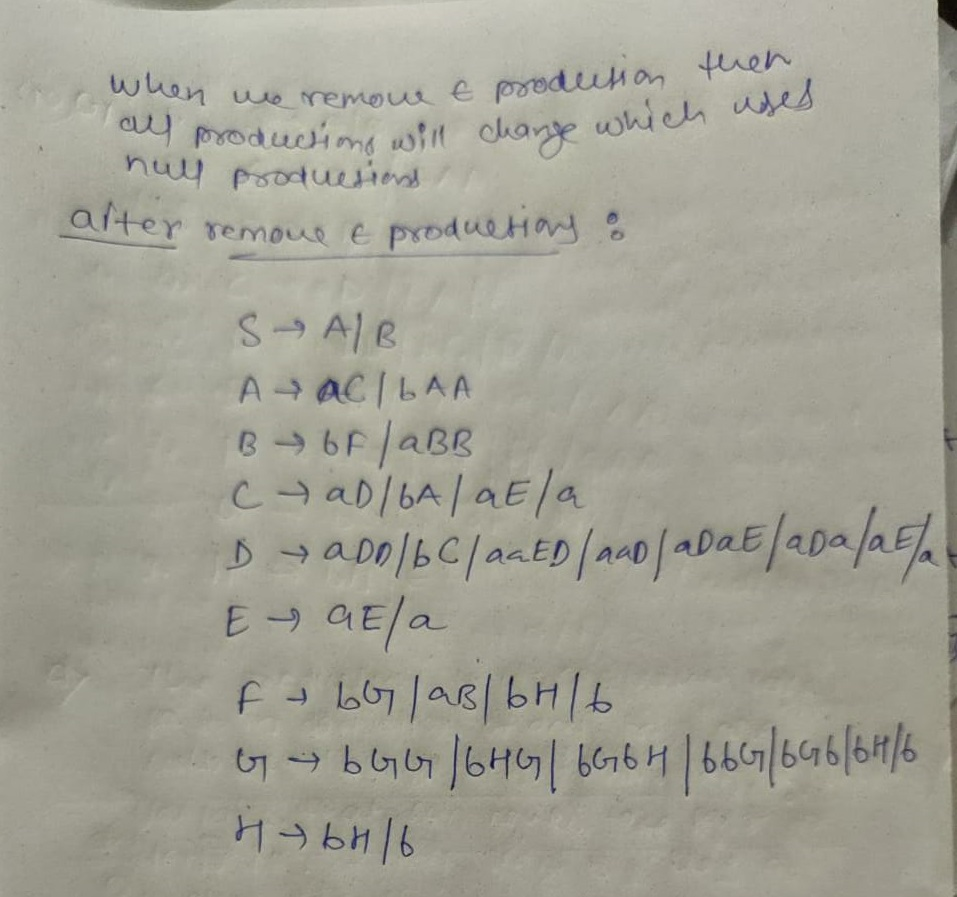 when we remove ε production then
all productions will change which uses
null productions
after remove ε productions :
S → A/B
A → aC/bAA
B → bF/aBB
C → aD/bA/aE/a
D → aDD/bC/aaED/aaD/aDaE/aDa/aE/a
E → aE/a
F → bG/aB/bH/b
G → bGG/bHG/bGbH/bbG/bGb/bH/b
H → bH/b